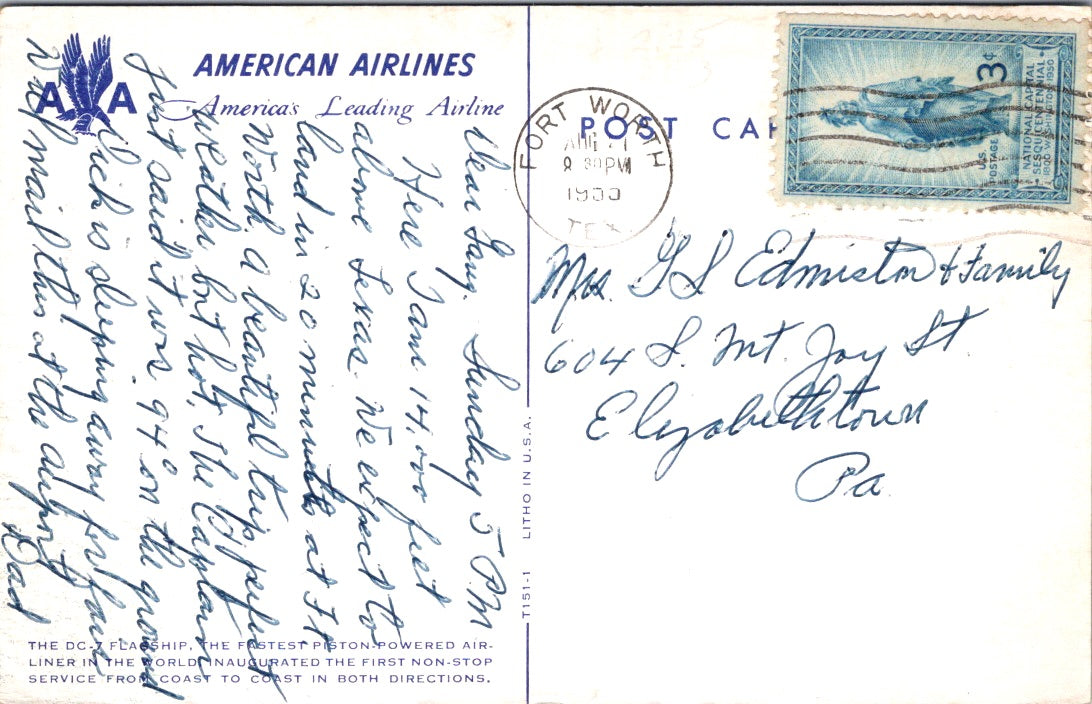 AMERICAN AIRLINES
A A
America's Leading Airline
Sunday 5 P.M
Dear Gang.
Here I am 14,000 feet
above Texas. We expect to
land in 20 minutes at Ft
Worth. a beautiful trip, perfect
weather but hot, The Captain
just said it was 94° on the ground
Dick is sleeping away for fair
Will mail this at the airport
Dad
THE DC-7 FLAGSHIP, THE FASTEST PISTON-POWERED AIR-
LINER IN THE WORLD, INAUGURATED THE FIRST NON-STOP
SERVICE FROM COAST TO COAST IN BOTH DIRECTIONS.
T151-1 LITHO IN U.S.A.
POST CAR
FORT WORTH
AUG 21
8 30 PM
TEX
3¢
U.S. POSTAGE
NATIONAL CAPITAL
SESQUICENTENNIAL
1800 WASHINGTON 1950
Mrs. G S Edmiston & Family
604 S. Mt. Joy St
Elizabethtown
Pa.